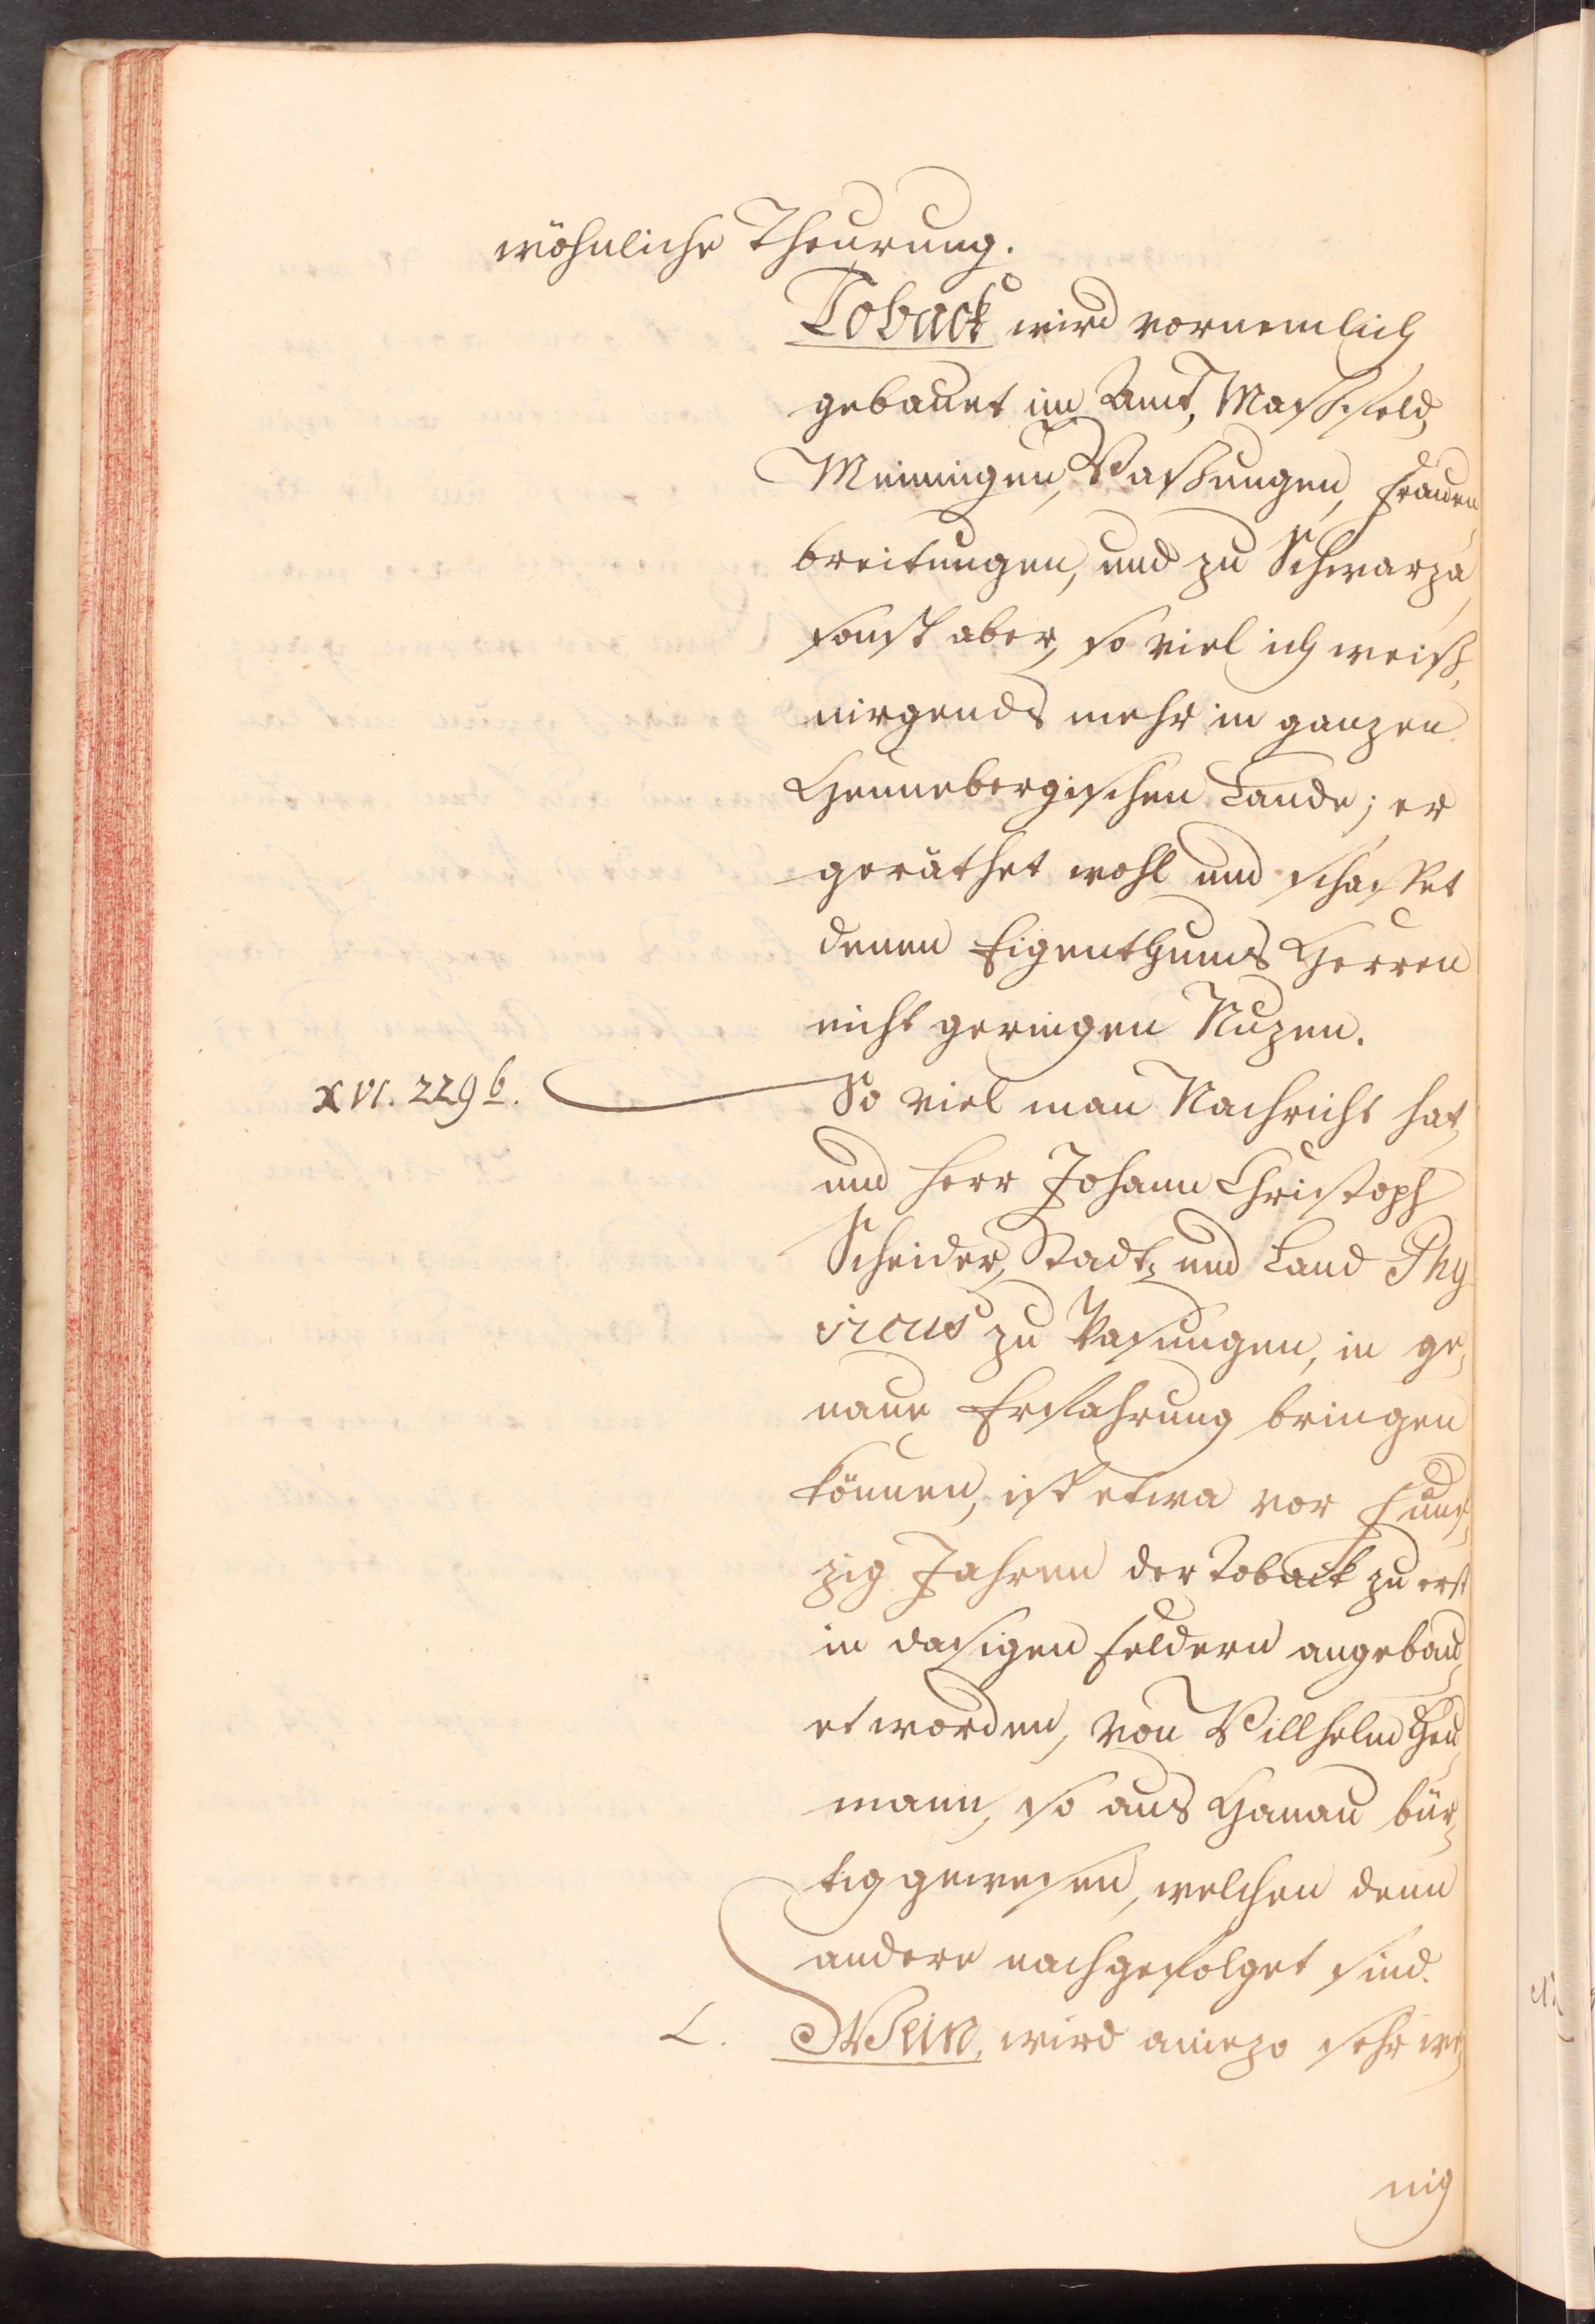 wöhnliche Theurung.
Toback wird vornemlich
gebauet im Amt, Maßfeld,
Meiningen, Waßungen, Frauen
breitungen, und zu Schwarza,
sonst aber, so viel ich weiß,
nirgends mehr im ganzen
Hennebergischen Lande; er
geräthet wohl und schaffet
denen Eigenthums Herren
nicht geringen Nuzen.
XVI. 229 b. So viel man Nachricht hat,
und Herr Johann Christoph
Scheider, Stadt, und Land Phy
sicus zu Wasungen, in ge,
naue Erfahrung bringen
können, ist etwa vor funf,
zig Jahren der Toback zu erst
in dasigen Feldern angebau,
et worden, von Willhelm Heu,
mann, so aus Hanau bür,
tig gewesen, welchen denn
andere nachgefolget sind.
L. Wein, wird aniezo sehr we,
nig